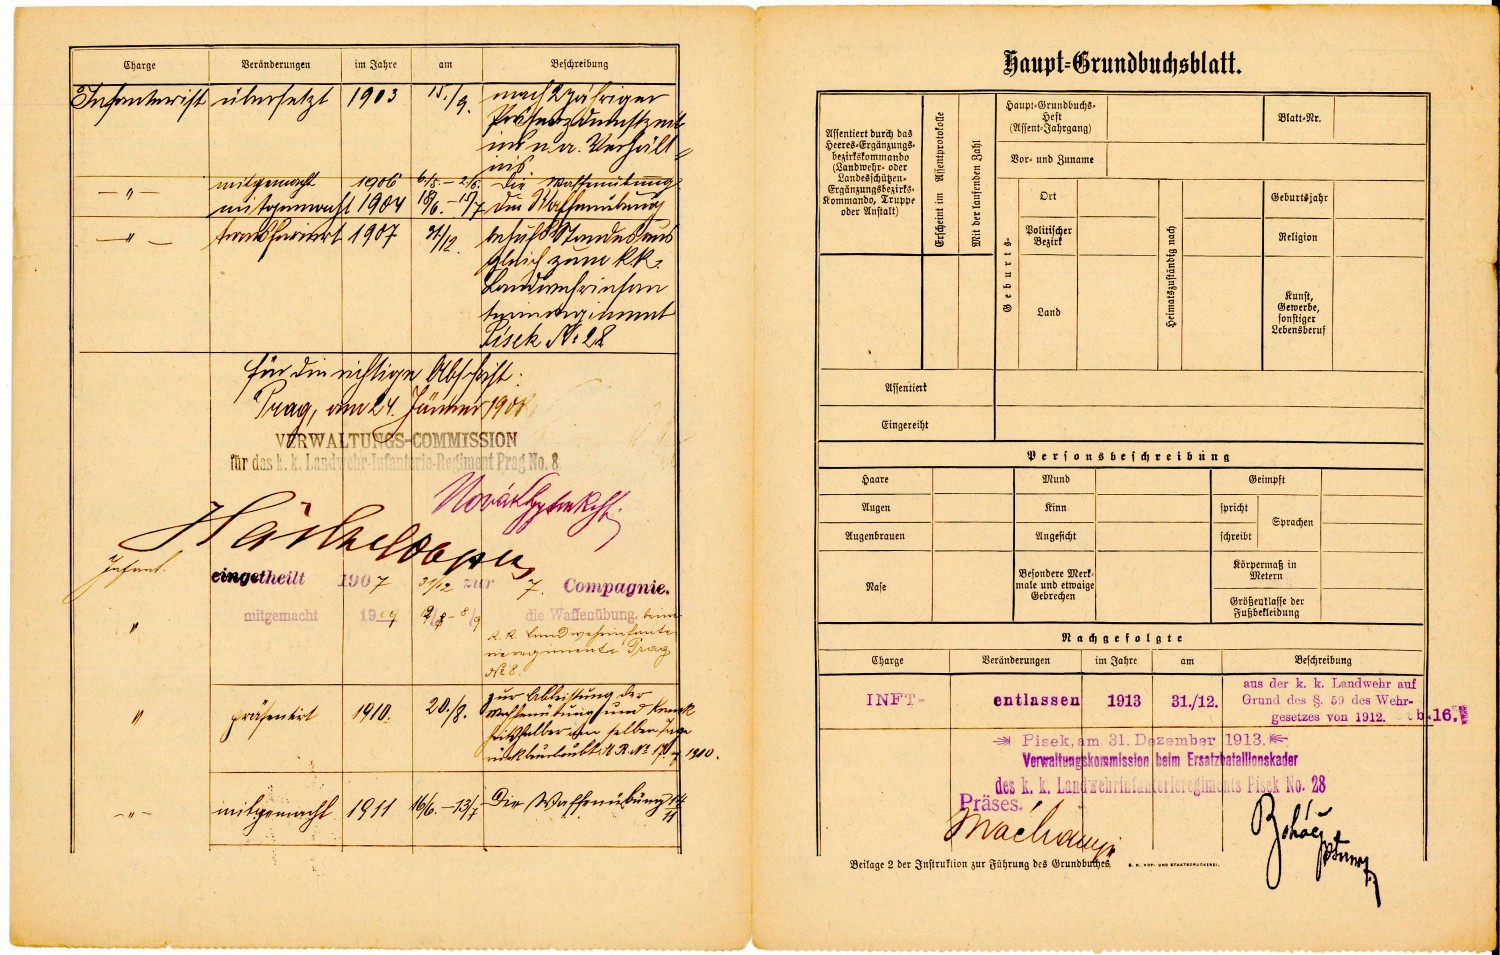 Charge Veränderungen im Jahre am Beschreibung
Infanterist übersetzt 1903 15./9. nach 2 jähriger
Präsenzdienstzeit
ins n. a. Verhält=
nis
— " — mitgemacht 1906 – 2/6. die Waffenübung
mitgemacht 1904 18/6. – 15/7 die Waffenübung
— " — transferiert 1907 31/12. behufs Standesaus
gleich zum k.k.
Landwehrinfan
terieregiment
Pisek № 28
für die richtige Abschrift:
Prag, am 24. Jänner 1908
VERWALTUNGS-COMMISSION
für das k. k. Landwehr-Infanterie-Regiment Prag No. 8.
Novák
Infant. eingetheilt 1907 31/12 zur 7. Compagnie.
" mitgemacht 1909 12/8 – 8/9 die Waffenübung. beim
k. k. Landwehrinfante
rieregimente Prag
№ 8.
" präsentirt 1910. 20./8. zur Ableistung der
Waffenübung und krank
heitshalber am selben Tage
rückbeurlaubt.
1910.
— " — mitgemacht 1911 16/6. – 13/7 Die Waffenübung
Haupt=Grundbuchsblatt.
Assentiert durch das
Heeres-Ergänzungs-
bezirkskommando
(Landwehr- oder
Landesschützen-
Ergänzungsbezirks-
Kommando, Truppe
oder Anstalt)
Erscheint im Assentprotokolle
Mit der laufenden Zahl
Haupt-Grundbuchs-
Heft
(Assent-Jahrgang)
Blatt-Nr.
Vor- und Zuname
Geburts-
Ort
Politischer
Bezirk
Land
Heimatszuständig nach
Geburtsjahr
Religion
Kunst,
Gewerbe,
sonstiger
Lebensberuf
Assentiert
Eingereiht
Personsbeschreibung
Haare Mund Geimpft
Augen Kinn spricht
Sprachen
Augenbrauen Angesicht schreibt
Nase Besondere Merk-
male und etwaige
Gebrechen
Körpermaß in
Metern
Größenklasse der
Fußbekleidung
Nachgefolgte
Charge Veränderungen im Jahre am Beschreibung
INFT- entlassen 1913 31./12. aus der k. k. Landwehr auf
Grund des § 59 des Wehr-
gesetzes von 1912.
Pisek, am 31. Dezember 1913.
Verwaltungskommission beim Ersatzbataillonskader
des k. k. Landwehrinfanterieregiments Pisek No. 28
Präses.
Beilage 2 der Instruktion zur Führung des Grundbuches. K. K. HOF- UND STAATSDRUCKEREI.